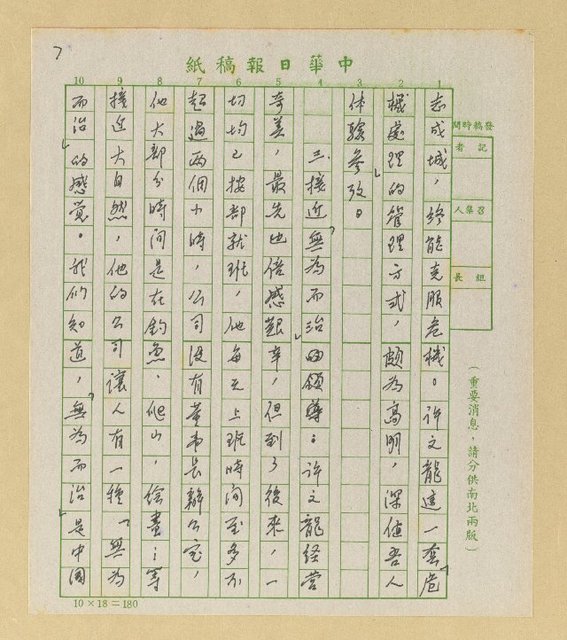 7
中華日報稿紙
發稿時間
記者
召集人
組長
(重要消息,請分供南北兩版)
1 2 3 4 5 6 7 8 9 10
志成城,終能克服危機。許文龍這一套「危
機處理」的管理方式,頗為高明,深值吾人
體驗參攷。
三、接近「無為而治」的領導:許文龍經營
奇美,最先也倍感艱辛,但到了後來,一
切均已按部就班,他每天上班時間至多不
超過兩個小時,公司沒有董事長辦公室,
他大部分時間是在釣魚、爬山,繪畫…等
接近大自然,他的公司讓人有一種「無為
而治」的感覺。我們知道,「無為而治」是中國
10×18=180